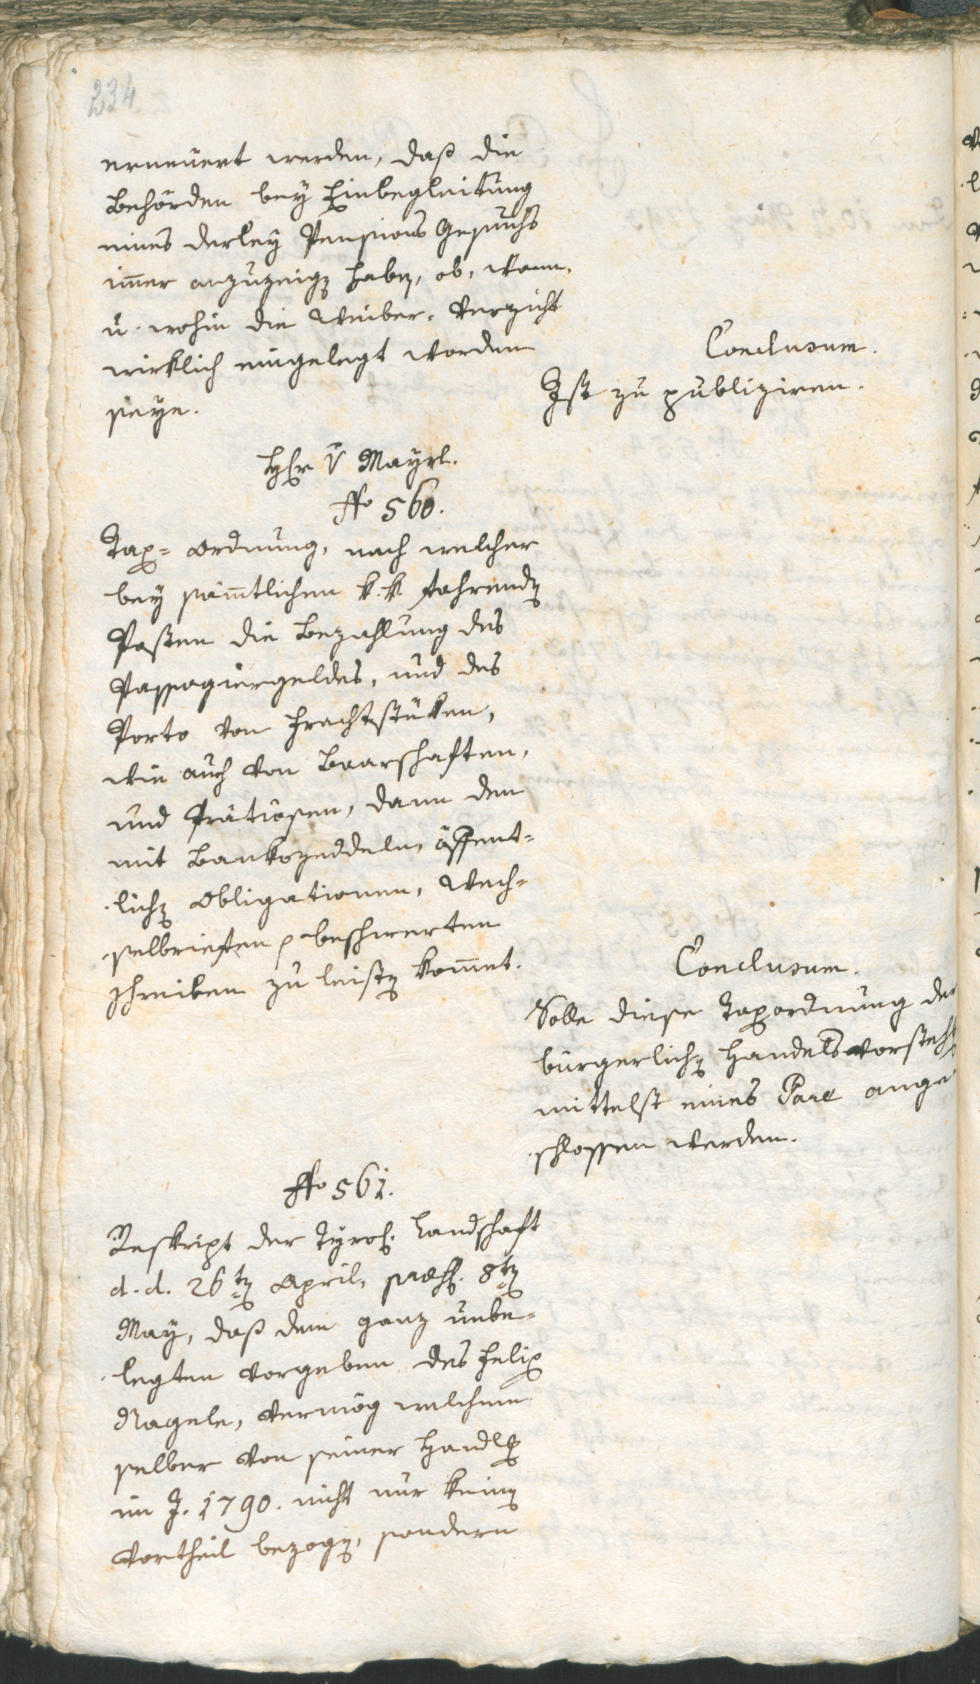 234
erneuert werden, daß die
Behörden bey Einbegleitung
eines derley Pensions Gesuchs
im̄er anzuzeigen haben, ob, wann,
u. wohin die Weiber-Verzicht
wirklich eingelegt worden
seye.
Conclusum.
Ist zu publiziren.
Hr v Mayrl.
No 560.
Tax-Ordnung, nach welcher
bey säm̄tlichen k. k. fahrenden
Posten die Bezahlung des
Passagiergeldes, und des
Porto von Frachtstüken,
wie auch von Baarschaften,
und Prätiosen, dann den
mit Bankozeddeln, öffent-
lichen Obligationen, Wech-
selbriefen p beschwerten
Schreiben zu leisten kom̄et.
Conclusum.
Solle diese Taxordnung der
bürgerlichen Handelsvorsteh
mittelst eines Pare ange
schlossen werden.
No 561.
Reskript der Tyrol. Landschaft
d. d. 26ten April, præs. 8ten
May, daß dem ganz unbe-
legten Vorgeben des Felix
Nagele, vermög welchem
selber von seiner Handlg
im J. 1790. nicht nur keinen
Vortheil bezogen, sondern